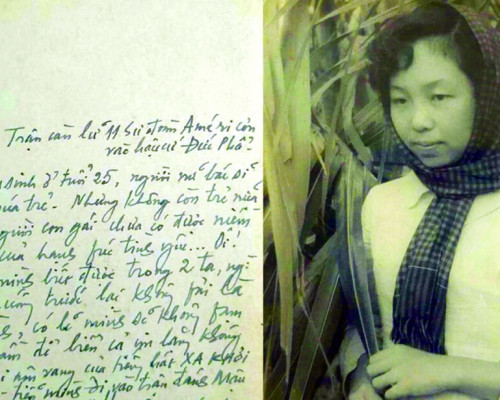 Trận càn lữ 11 Sư đoàn Améri còn
vào hậu cứ Đức Phổ?
sinh ở tuổi 25, người nữ bác sĩ
quá trẻ. Nhưng không còn trẻ nữa
người con gái chưa có được niềm
của hạnh phúc tình yêu... Ôi!
mình biết được trong 2 ta,
trước lại không phải là
có lẽ mình sẽ không
để biển ca lặng không
âm vang của tiếng hát XA KHƠI
tiễn mình đi vào trận đánh